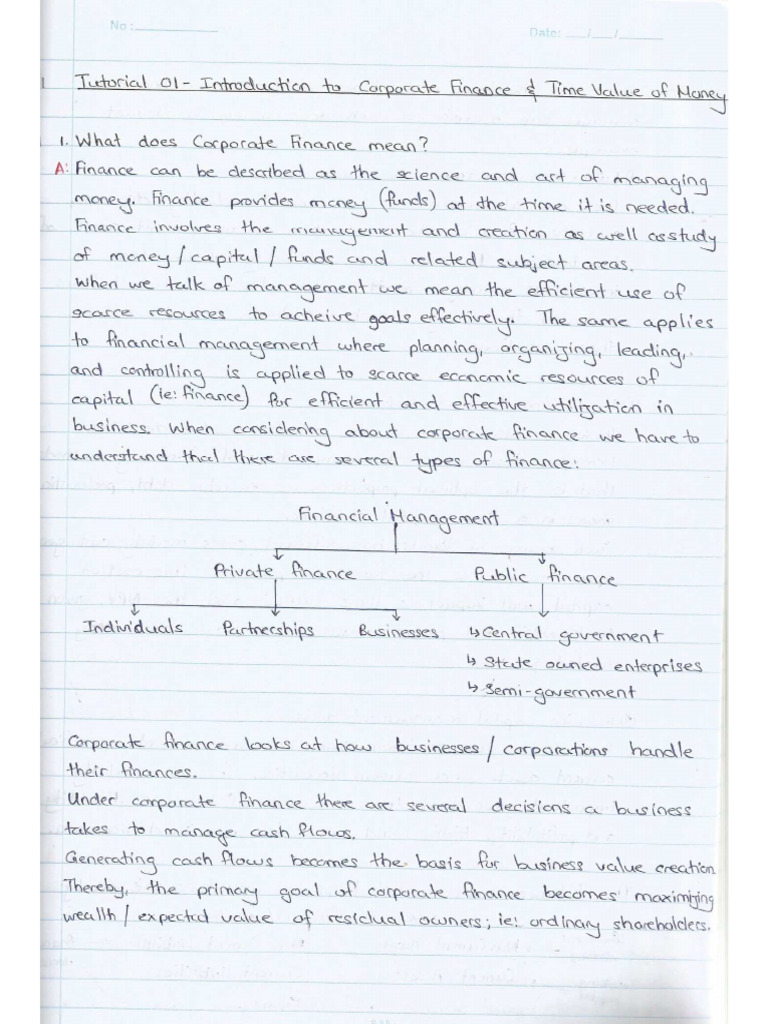 No:
Date: __/__/__
1 Tutorial 01- Introduction to Corporate Finance & Time Value of Money
1. What does Corporate Finance mean?
A: Finance can be described as the science and art of managing
money. Finance provides money (funds) at the time it is needed.
Finance involves the management and creation as well as study
of money/capital/funds and related subject areas.
When we talk of management we mean the efficient use of
scarce resources to acheive goals effectively. The same applies
to financial management where planning, organizing, leading,
and controlling is applied to scarce economic resources of
capital (ie: finance) for efficient and effective utilization in
business. When considering about corporate finance we have to
understand that there are several types of finance:
Financial Management
Private finance Public finance
Individuals Partnerships Businesses ↳ Central government
↳ State owned enterprises
↳ Semi-government
Corporate finance looks at how businesses/corporations handle
their finances.
Under corporate finance there are several decisions a business
takes to manage cash flows.
Generating cash flows becomes the basis for business value creation
Thereby, the primary goal of corporate finance becomes maximizing
wealth/expected value of residual owners; ie: ordinary shareholders.